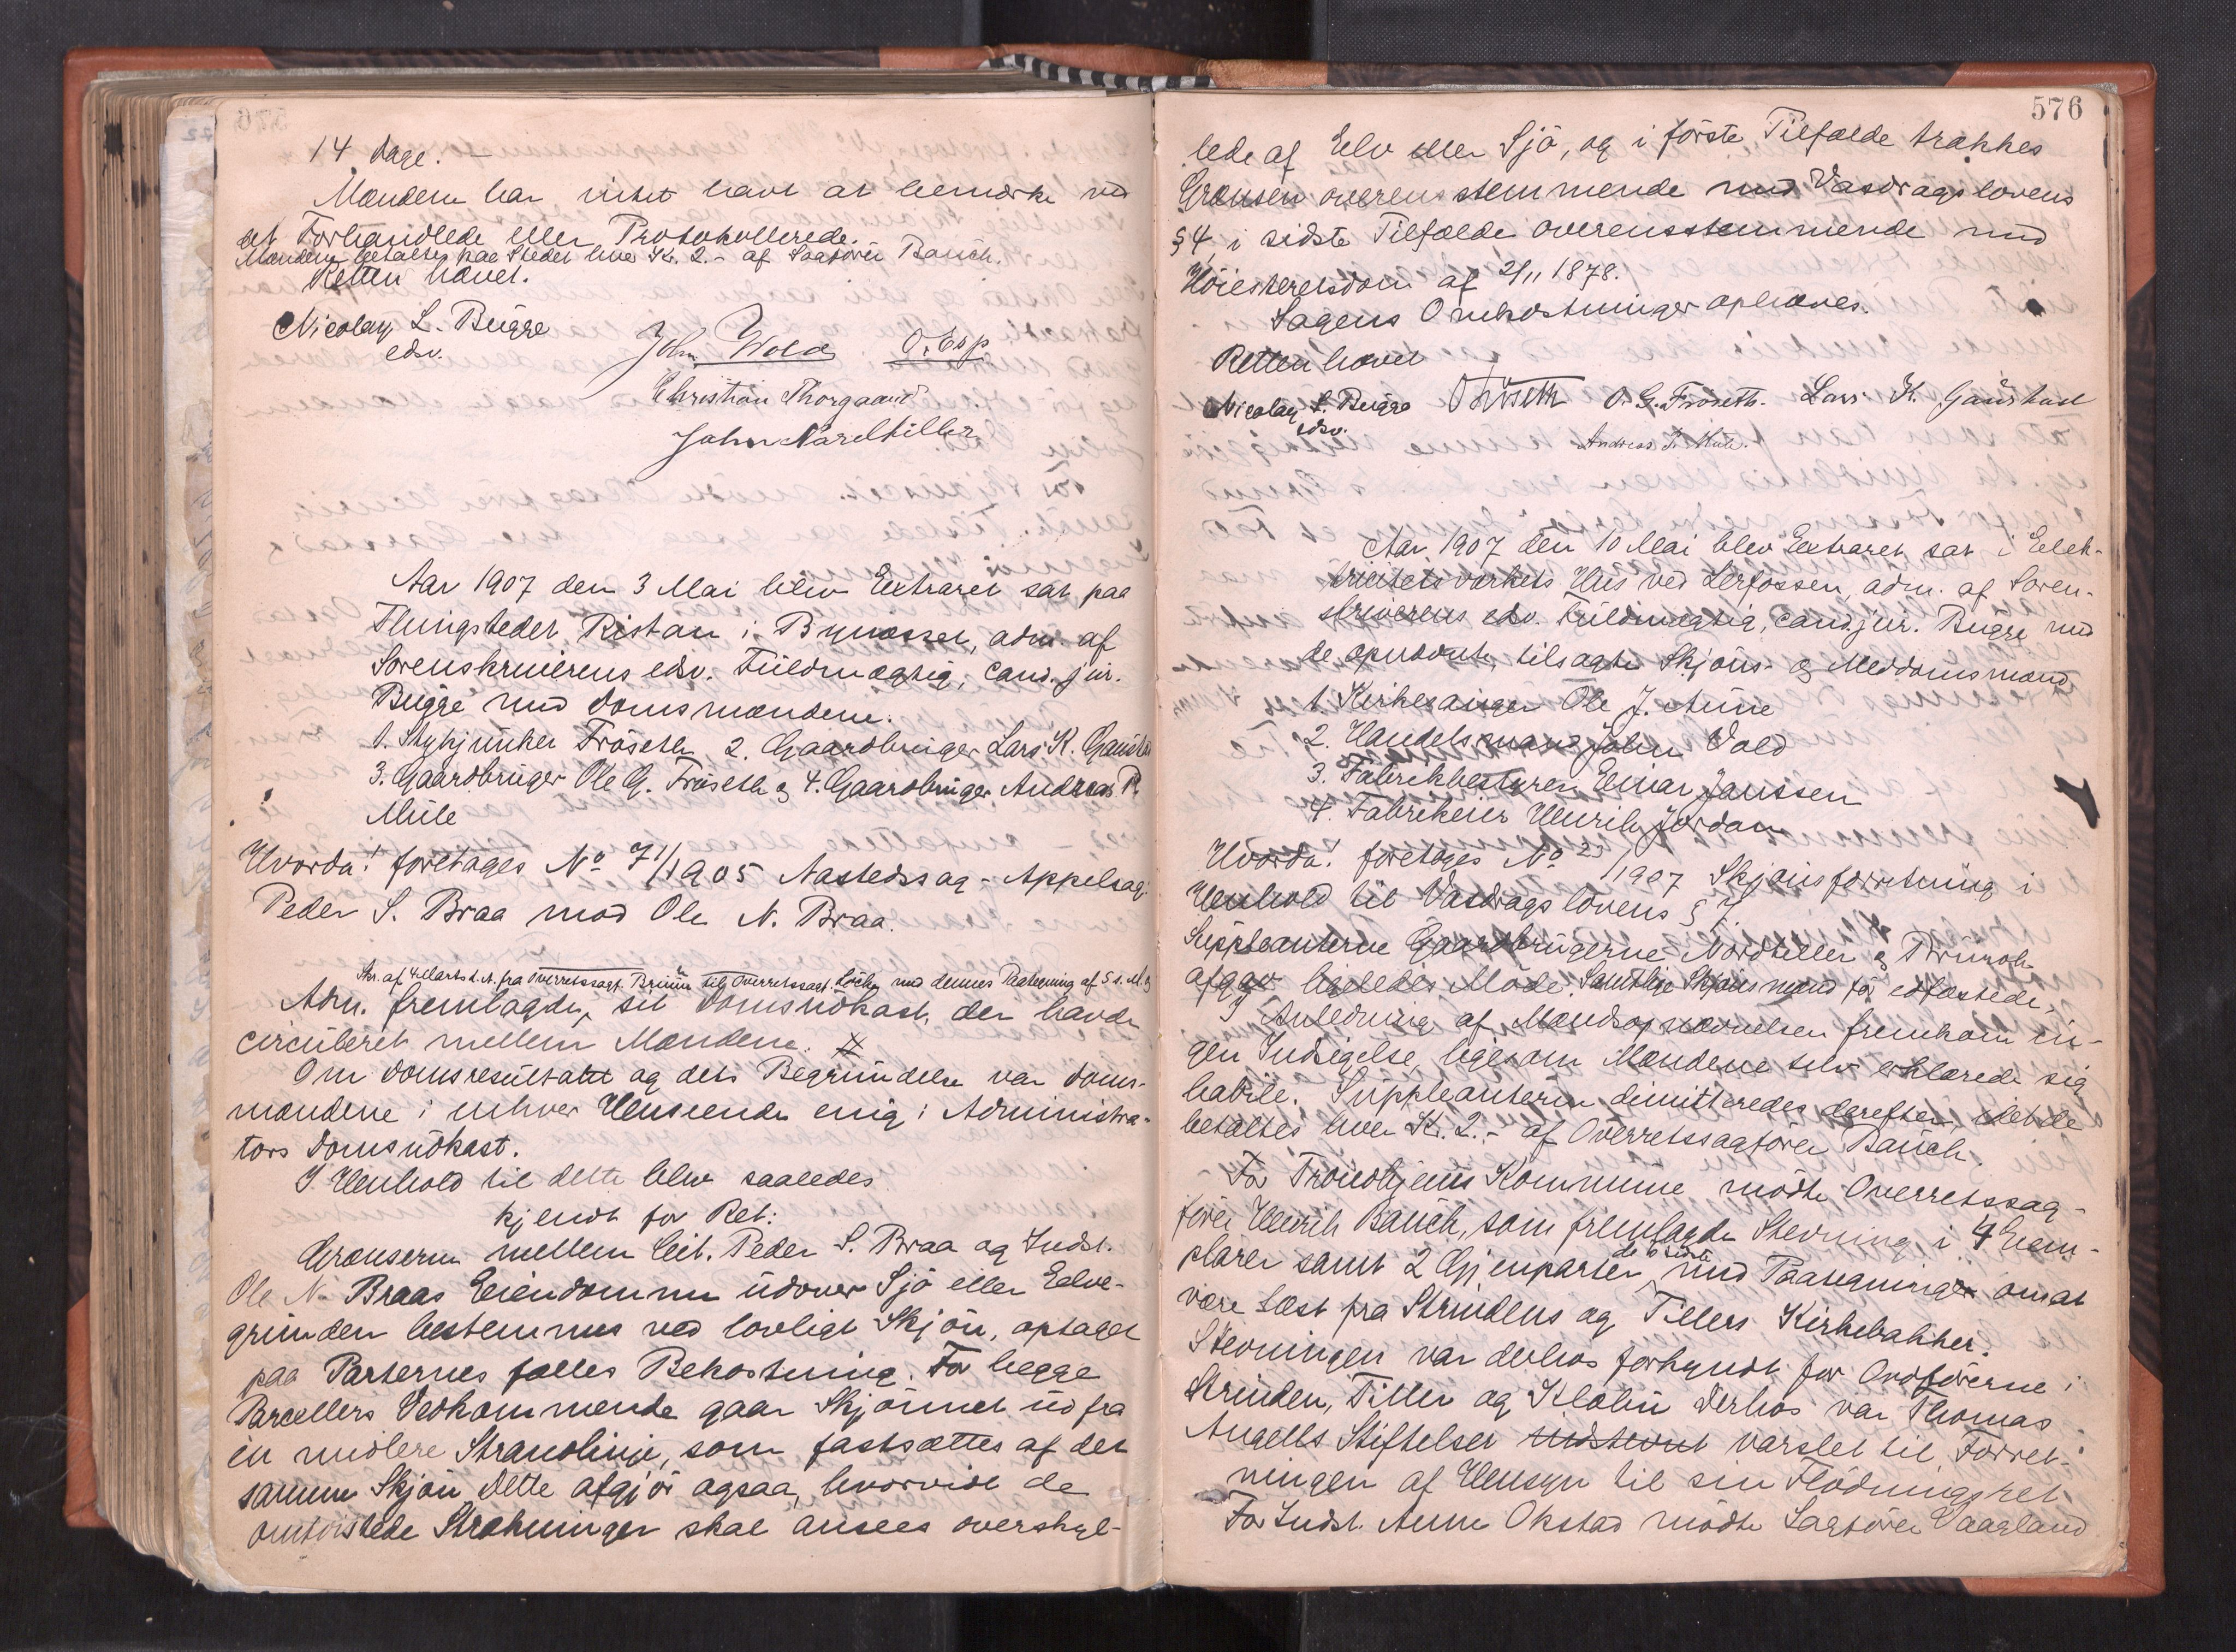 14 Dage. —
Mændene har intet havt at bemærke ved
det Forhandlede eller Protokollerede.
Mændene betaltes paa Stedet hver Kr. 2.- af Sagfører Bauck.
Retten hævet.
Nicolay L. Bugge
edsv.
John Wold O. Esp
Christian Thorgaard
John Nordtiller
Aar 1907 den 3 Mai blev Extraret sat paa
Thingstedet Ristan i Bynæsset, adm. af
Sorenskriverens edsv. Fuldmægtig, cand. jur.
Bugge med Domsmændene:
1. Stykjunker Frøseth 2. Gaardbruger Lars K. Gaustad
3. Gaardbruger Ole G. Frøseth og 4. Gaardbruger Andreas P.
Mule
Hvorda! foretages No 71/1905 Aastedssag - Appelsag:
Peder S. Braa mod Ole N. Braa.
Skr. af 4 Marts d. A. fra Overretssagf. Bruun til Overretssagf. Löchen med dennes Paategning af 5 s. M. og
Adm. fremlagde sit Domsudkast, der havde
circuleret mellem Mændene.
Om Domsresultatet og dets Begrundelse var Doms-
mændene i enhver Henseende enig i Administra-
tors Domsudkast.
I Henhold til dette blev saaledes
kjendt for Ret:
Grænserne mellem Cit. Peder S. Braa og Indst.
Ole N. Braas Eiendomme udover Sjø eller Elve-
grunden bestemmes ved lovligt Skjøn, optaget
paa Parternes fælles Bekostning. For begge
Parcellers Vedkommende gaar Skjønnet ud fra
en midlere Strandlinje, som fastsættes af det
samme Skjøn. Dette afgjør ogsaa, hvorvidt de
omtvistede Strækninger skal ansees overskyl-
576
lede af Elv eller Sjø, og i første Tilfælde trækkes
Grænsen overensstemmende med Vasdragslovens
§ 4, i sidste Tilfælde overensstemmende med
Høiesteretsdom af 2/11 1878.
Sagens Omkostninger ophæves.
Retten hævet
Nicolay L. Bugge
edsv.
O Frøseth O. G. Frøseth. Lars K. Gaustad
Andreas P. Mule.
Aar 1907 den 10 Mai blev Extraret sat i Elek-
tricitetsværkets Hus ved Lerfossen, adm. af Soren-
skriverens edsv. Fuldmægtig, cand. jur. Bugge med
de opnævnte, tilsagte Skjøns- og Meddomsmænd
1. Kirkesanger Ole J. Aune
2. Handelsmand John Vold
3. Fabrikbestyrer Einar Janssen
4. Fabrikeier Henrik Jordan
Hvorda! foretages No 25/1907 Skjønsforretning i
Henhold til Vasdragslovens § 7.
Suppleanterne Gaardbrugerne Nordtiller og
afgav ligeledes Møde. Samtlige Skjønsmænd før edfæstede.
I Anledning af Mændsopnævnelsen fremkom in-
gen Indsigelse, ligesom Mændene selv erklærede sig
habile. Suppleanterne dimitteredes derefter, idet de
betaltes hver Kr. 2.- af Overretssagfører Bauck.
For Trondhjems Kommune mødte Overretssag-
fører Henrik Bauck, som fremlagde Stevning i 4 Exem-
plarer samt 2 Gjenparter, de 2 sidste med Paategninger om at
være læst fra Strindens og Tillers Kirkebakker.
Stevningen var derhos forkyndt for Ordførerne i
Strinden, Tiller og Klæbu. Derhos var Thomas
Angells Stiftelser indstevnt varslet til Forret-
ningen af Hensyn til sin Flødningsret.
For Indst. Anne Okstad mødte Sagfører Vaagland